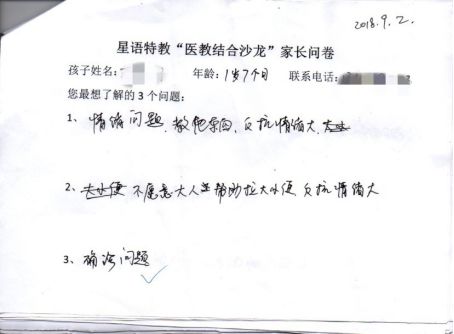 2018.9.2.
星语特教“医教结合沙龙”家长问卷
孩子姓名： 年龄：1岁7个月 联系电话：
您最想了解的 3 个问题：
1、情绪问题，教他东西，反抗情绪大，
2、不愿意大人帮助拉大小便 反抗情绪大
3、确诊问题